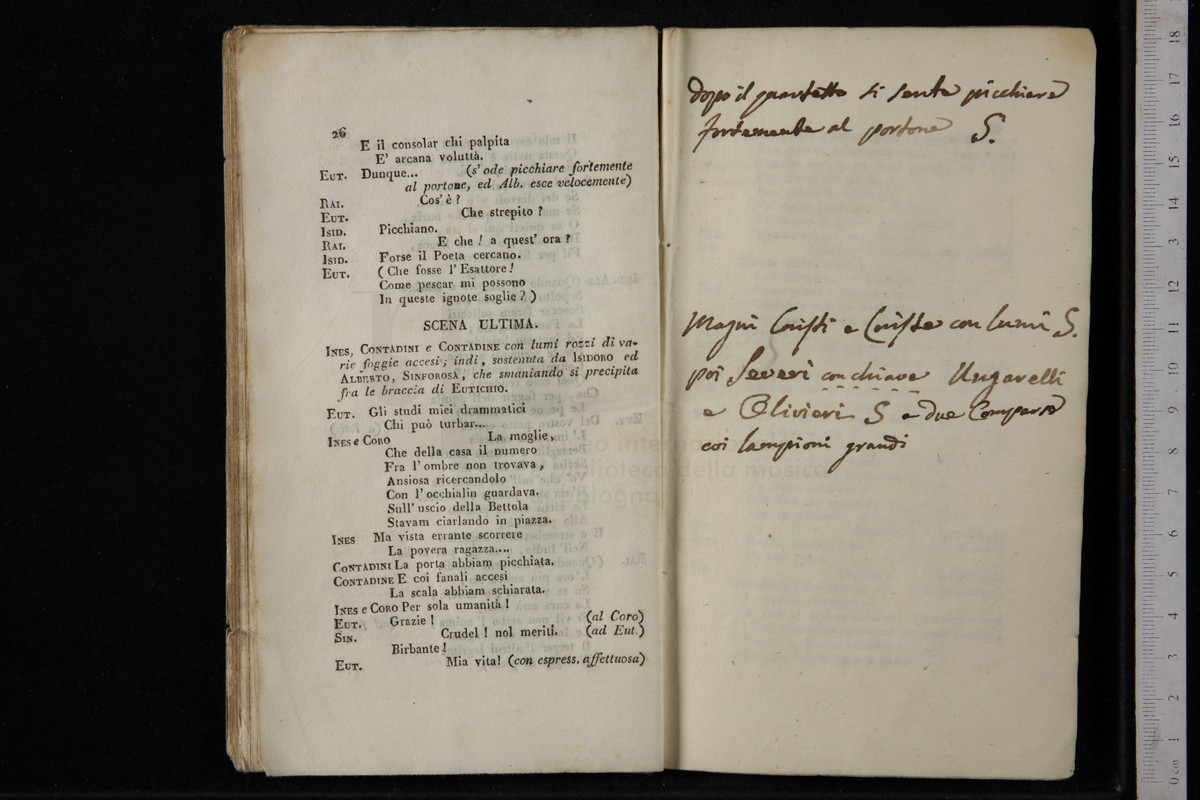 26
E il consolar chi palpita
E' arcana voluttà.
EUT. Dunque... (s' ode picchiare fortemente
al portone, ed Alb. esce velocemente)
RAI. Cos' è ?
EUT. Che strepito ?
ISID. Picchiano.
RAI. E che ! a quest' ora ?
ISID. Forse il Poeta cercano.
EUT. ( Che fosse l' Esattore !
Come pescar mi possono
In queste ignote soglie ? )
SCENA ULTIMA.
INES, CONTADINI e CONTADINE con lumi rozzi di va-
rie foggie accesi ; indi , sostenuta da ISIDORO ed
ALBERTO, SINFOROSA , che smaniando si precipita
fra le braccia di EUTICHIO.
EUT. Gli studi miei drammatici
Chi può turbar...
INES e CORO La moglie ,
Che della casa il numero
Fra l' ombre non trovava ,
Ansiosa ricercandolo
Con l' occhialin guardava.
Sull' uscio della Bettola
Stavam ciarlando in piazza.
INES Ma vista errante scorrere
La povera ragazza....
CONTADINI La porta abbiam picchiata.
CONTADINE E coi fanali accesi
La scala abbiam schiarata.
INES e CORO Per sola umanità !
EUT. Grazie ! (al Coro)
SIN. Crudel ! nol meriti. (ad Eut.)
Birbante !
EUT. Mia vita! (con espress. affettuosa)
dopo il quartetto si sente picchiare
fortemente al portone S.
Magni Coristi e Coriste con lumi S.
poi Severi con chiave Ungarelli
e Olivieri S e due Comparse
coi lampioni grandi
museo internazionale
biblioteca della musica
Bologna